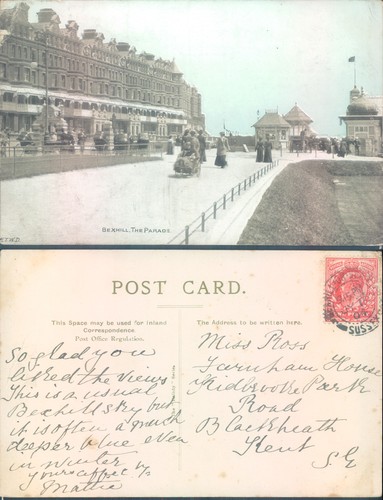 BEXHILL, THE PARADE
POST CARD.
This Space may be used for Inland Correspondence.
Post Office Regulation.
The Address to be written here.
So glad you
liked the views
This is a usual
Bexhill sky but
it is often a much
deeper blue even
in winter
Yours affec'ly
Mattie
Miss Ross
Farnham House
Kidbrooke Park
Road
Blackheath
Kent
S.E